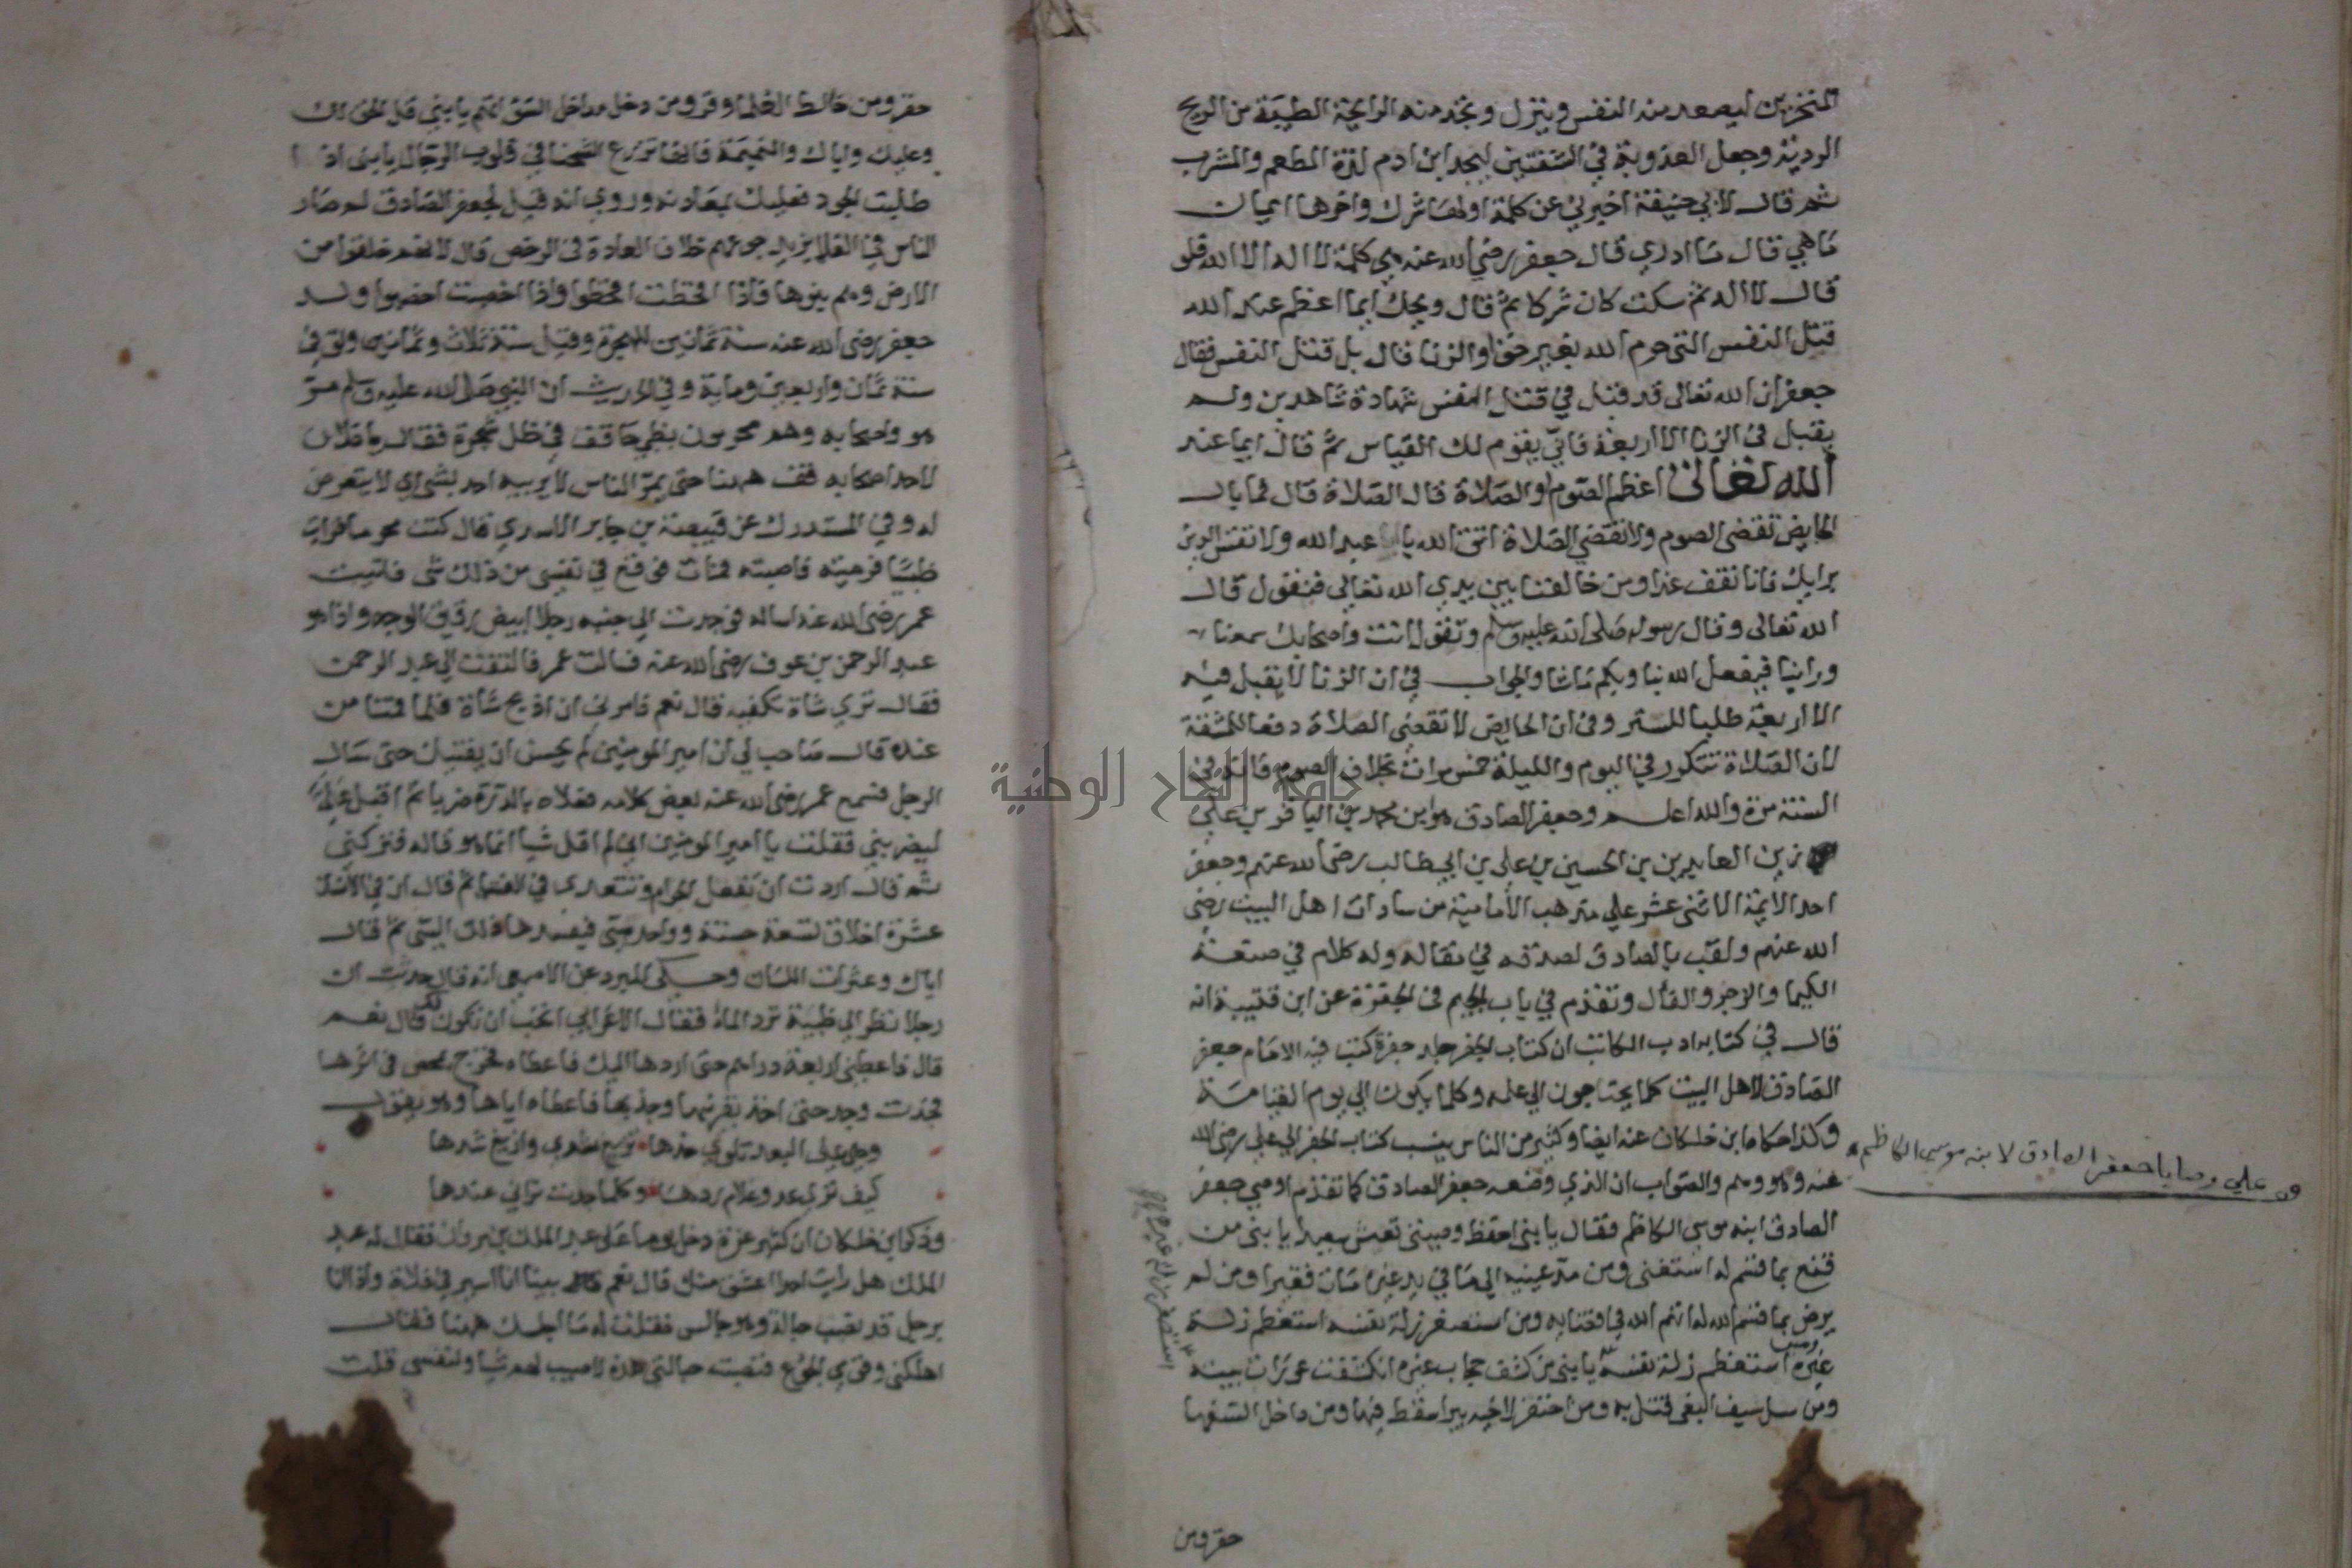 المنخرين ليصعد منه النفس وينزل ويجد منه الرايحة الطيبة من الريح
الردية وجعل العذوبة في الشفتين ليجد ابن ادم لذة المطعم والمشرب
ثم قال لابي حنيفة اخبرني عن كلمة اولها شرك واخرها ايمان
ما هي قال ما ادري قال جعفر رضي الله عنه هي كلمة لا اله الا الله فلو
قال لا اله ثم سكت كان شركا ثم قال ويحك ايما اعظم عند الله
قتل النفس التي حرم الله بغير حق او الزنا قال بل قتل النفس فقال
جعفر ان الله تعالى قد قبل في قتل النفس شهادة شاهدين ولم
يقبل في الزنا الا اربعة فانى يقوم لك القياس ثم قال ايما عند
الله تعالى اعظم الصوم او الصلاة قال الصلاة قال فما بال
الحايض تقضي الصوم ولا تقضي الصلاة اتق الله يا عبد الله ولا تقس الدين
برايك فانا نقف غدا ومن خالفنا بين يدي الله تعالى فنقول قال
الله تعالى وقال رسوله صلى الله عليه وسلم وتقول انت واصحابك سمعنا
وراينا فيفعل الله بنا وبكم ما شا والجواب في ان الزنا لا يقبل فيه
الا اربعة طلبا للستر وفي ان الحايض لا تقضي الصلاة دفعا للمشقة
لان الصلاة تتكرر في اليوم والليلة خمس مرات بخلاف الصوم فانه في
السنة مرة والله اعلم وجعفر الصادق هو ابن محمد بن الباقر بن علي
زين العابدين بن الحسين بن علي بن ابي طالب رضي الله عنهم وجعفر
احد الايمة الاثنى عشر علي مذهب الامامية من سادات اهل البيت رضي
الله عنهم ولقب بالصادق لصدقه في مقاله وله كلام في صنعة
الكيميا والزجر والفأل وتقدم في باب الجيم في الجفرة عن ابن قتيبة انه
قال في كتابه ادب الكاتب ان كتاب الجفر جلد جفرة كتب فيه الامام جعفر
الصادق لاهل البيت كلما يحتاجون الي علمه وكلما يكون الي يوم القيامة
وكذا حكاه ابن خلكان عنه ايضا وكثير من الناس ينسب كتاب الجفر الي علي رضي الله
عنه وهو وهم والصواب ان الذي وضعه جعفر الصادق كما تقدم اوصي جعفر
الصادق ابنه موسى الكاظم فقال يا بني احفظ وصيتي تعش سعيدا يا بني من
قنع بما قسم له استغنى ومن مد عينيه الي ما في يد غيره مات فقيرا ومن لم
يرض بما قسم الله له اتهم الله في قضايه ومن استصغر زلة نفسه استعظم زلة
غيره ومن استعظم زلة نفسه يا بني من كشف حجاب غيره انكشفت عورات بيته
ومن سل سيف البغي قتل به ومن احتفر لاخيه بيرا سقط فيها ومن داخل السفها
حقر ومن
علي وصايا جعفر الصادق لابنه موسى الكاظم
حقر ومن خالط العلما وقر ومن دخل مداخل السو اتهم يا بني قل الحق لك
وعليك واياك والنميمة فانها تزرع الشحنا في قلوب الرجال يا بني اذا
طلبت الجود فعليك بمعادنه وروي انه قيل لجعفر الصادق لم صار
الناس في الغلا يزيد جوعهم خلاف العادة في الرخص قال لانهم خلقوا من
الارض وهم بنوها فاذا اقحطت اقحطوا واذا اخصبت اخصبوا ولد
جعفر رضي الله عنه سنة ثمانين للهجرة وقيل سنة ثلاث وثمانين وتوفي
سنة ثمان واربعين وماية وفي الحديث ان النبي صلى الله عليه وسلم مر
هو واصحابه وهم محرمون بظبي حاقف في ظل شجرة فقال يا فلان
لاحد اصحابه قف ههنا حتى يمر الناس لا يريبه احد بشي اي لا يتعرض
له وفي المستدرك عن قبيصة بن جابر الاسدي قال كنت محرما فرايت
ظبيا فرميته فاصبته فمات فوقع في نفسي من ذلك شي فاتيت
عمر رضي الله عنه اساله فوجدت الي جنبه رجلا ابيض رقيق الوجه واذا هو
عبد الرحمن بن عوف رضي الله عنه فسالت عمر فالتفت الي عبد الرحمن
فقال تري شاة تكفيه قال نعم فامرني ان اذبح شاة فلما قمنا من
عنده قال صاحب لي ان امير المومنين لم يحسن ان يفتيك حتى سال
الرجل فسمع عمر رضي الله عنه بعض كلامه فعلاه بالدرة ضربا ثم اقبل علي
ليضربني فقلت يا امير المومنين اني لم اقل شيا انما هو قاله فتركني
ثم قال اردت ان تفعل الحرام وتتعدى في الفتيا ثم قال ان في الانسان
عشرة اخلاق تسعة حسنة وواحد سيى فيفسدها ذلك السيى ثم قال
اياك وعثرات اللسان وحكى المبرد عن الاصمعي انه قال حدثت ان
رجلا نظر الي ظبية ترد الماء فقال الاعرابي اتحب ان تكون لك قال نعم
قال فاعطني اربعة دراهم حتى اردها اليك فاعطاه فخرج يمحص في اثرها
فجدت وجد حتى اخذ بقرنها وجذبها فاعطاه اياها وهو يقول
وهي على البعد تلوي خدها تريغ شدي واريغ شدها
كيف تري عدو غلام ردها وكلما جدت تراني عندها
وذكر ابن خلكان ان كثير عزة دخل يوما على عبد الملك بن مروان فقال له عبد
الملك هل رايت احدا اعشق منك قال نعم بينا انا اسير في فلاة واذا انا
برجل قد نصب حباله وهو جالس فقلت له ما اجلسك ههنا فقال
اهلكني وقومي الجوع فنصبت حبالتي هذه لاصيب لهم شيا ولنفسى قلت
جامعة النجاح الوطنية